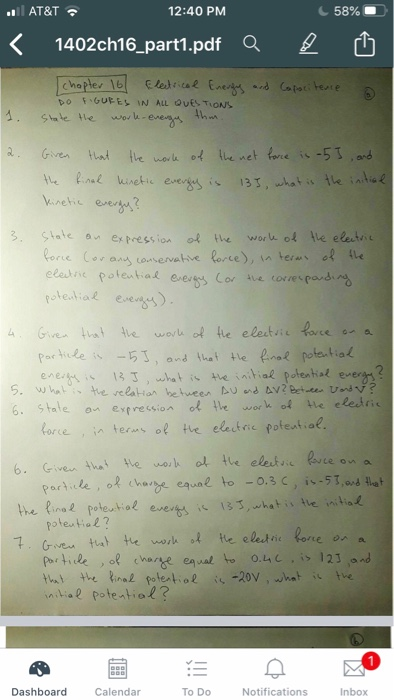 AT&T 12:40 PM 58%
1402ch16_part1.pdf
chapter 16 Electrical Energy and Capacitance
DO FIGURES IN ALL QUESTIONS
1. State the work-energy thm.
2. Given that the work of the net force is -5J, and
the final kinetic energy is 13J, what is the initial
kinetic energy?
3. State an expression of the work of the electric
force (or any conservative force), in terms of the
electric potential energy (or the corresponding
potential energy).
4. Given that the work of the electric force on a
particle is -5J, and that the final potential
energy is 13J, what is the initial potential energy?
5. What is the relation between ΔU and ΔV? Between U and V?
6. State an expression of the work of the electric
force, in terms of the electric potential.
6. Given that the work of the electric force on a
particle, of charge equal to -0.3C, is -5J, and that
the final potential energy is 13J, what is the initial
potential?
7. Given that the work of the electric force on a
particle, of charge equal to 0.4C, is 12J, and
that the final potential is -20V, what is the
initial potential?
1
Dashboard Calendar To Do Notifications Inbox